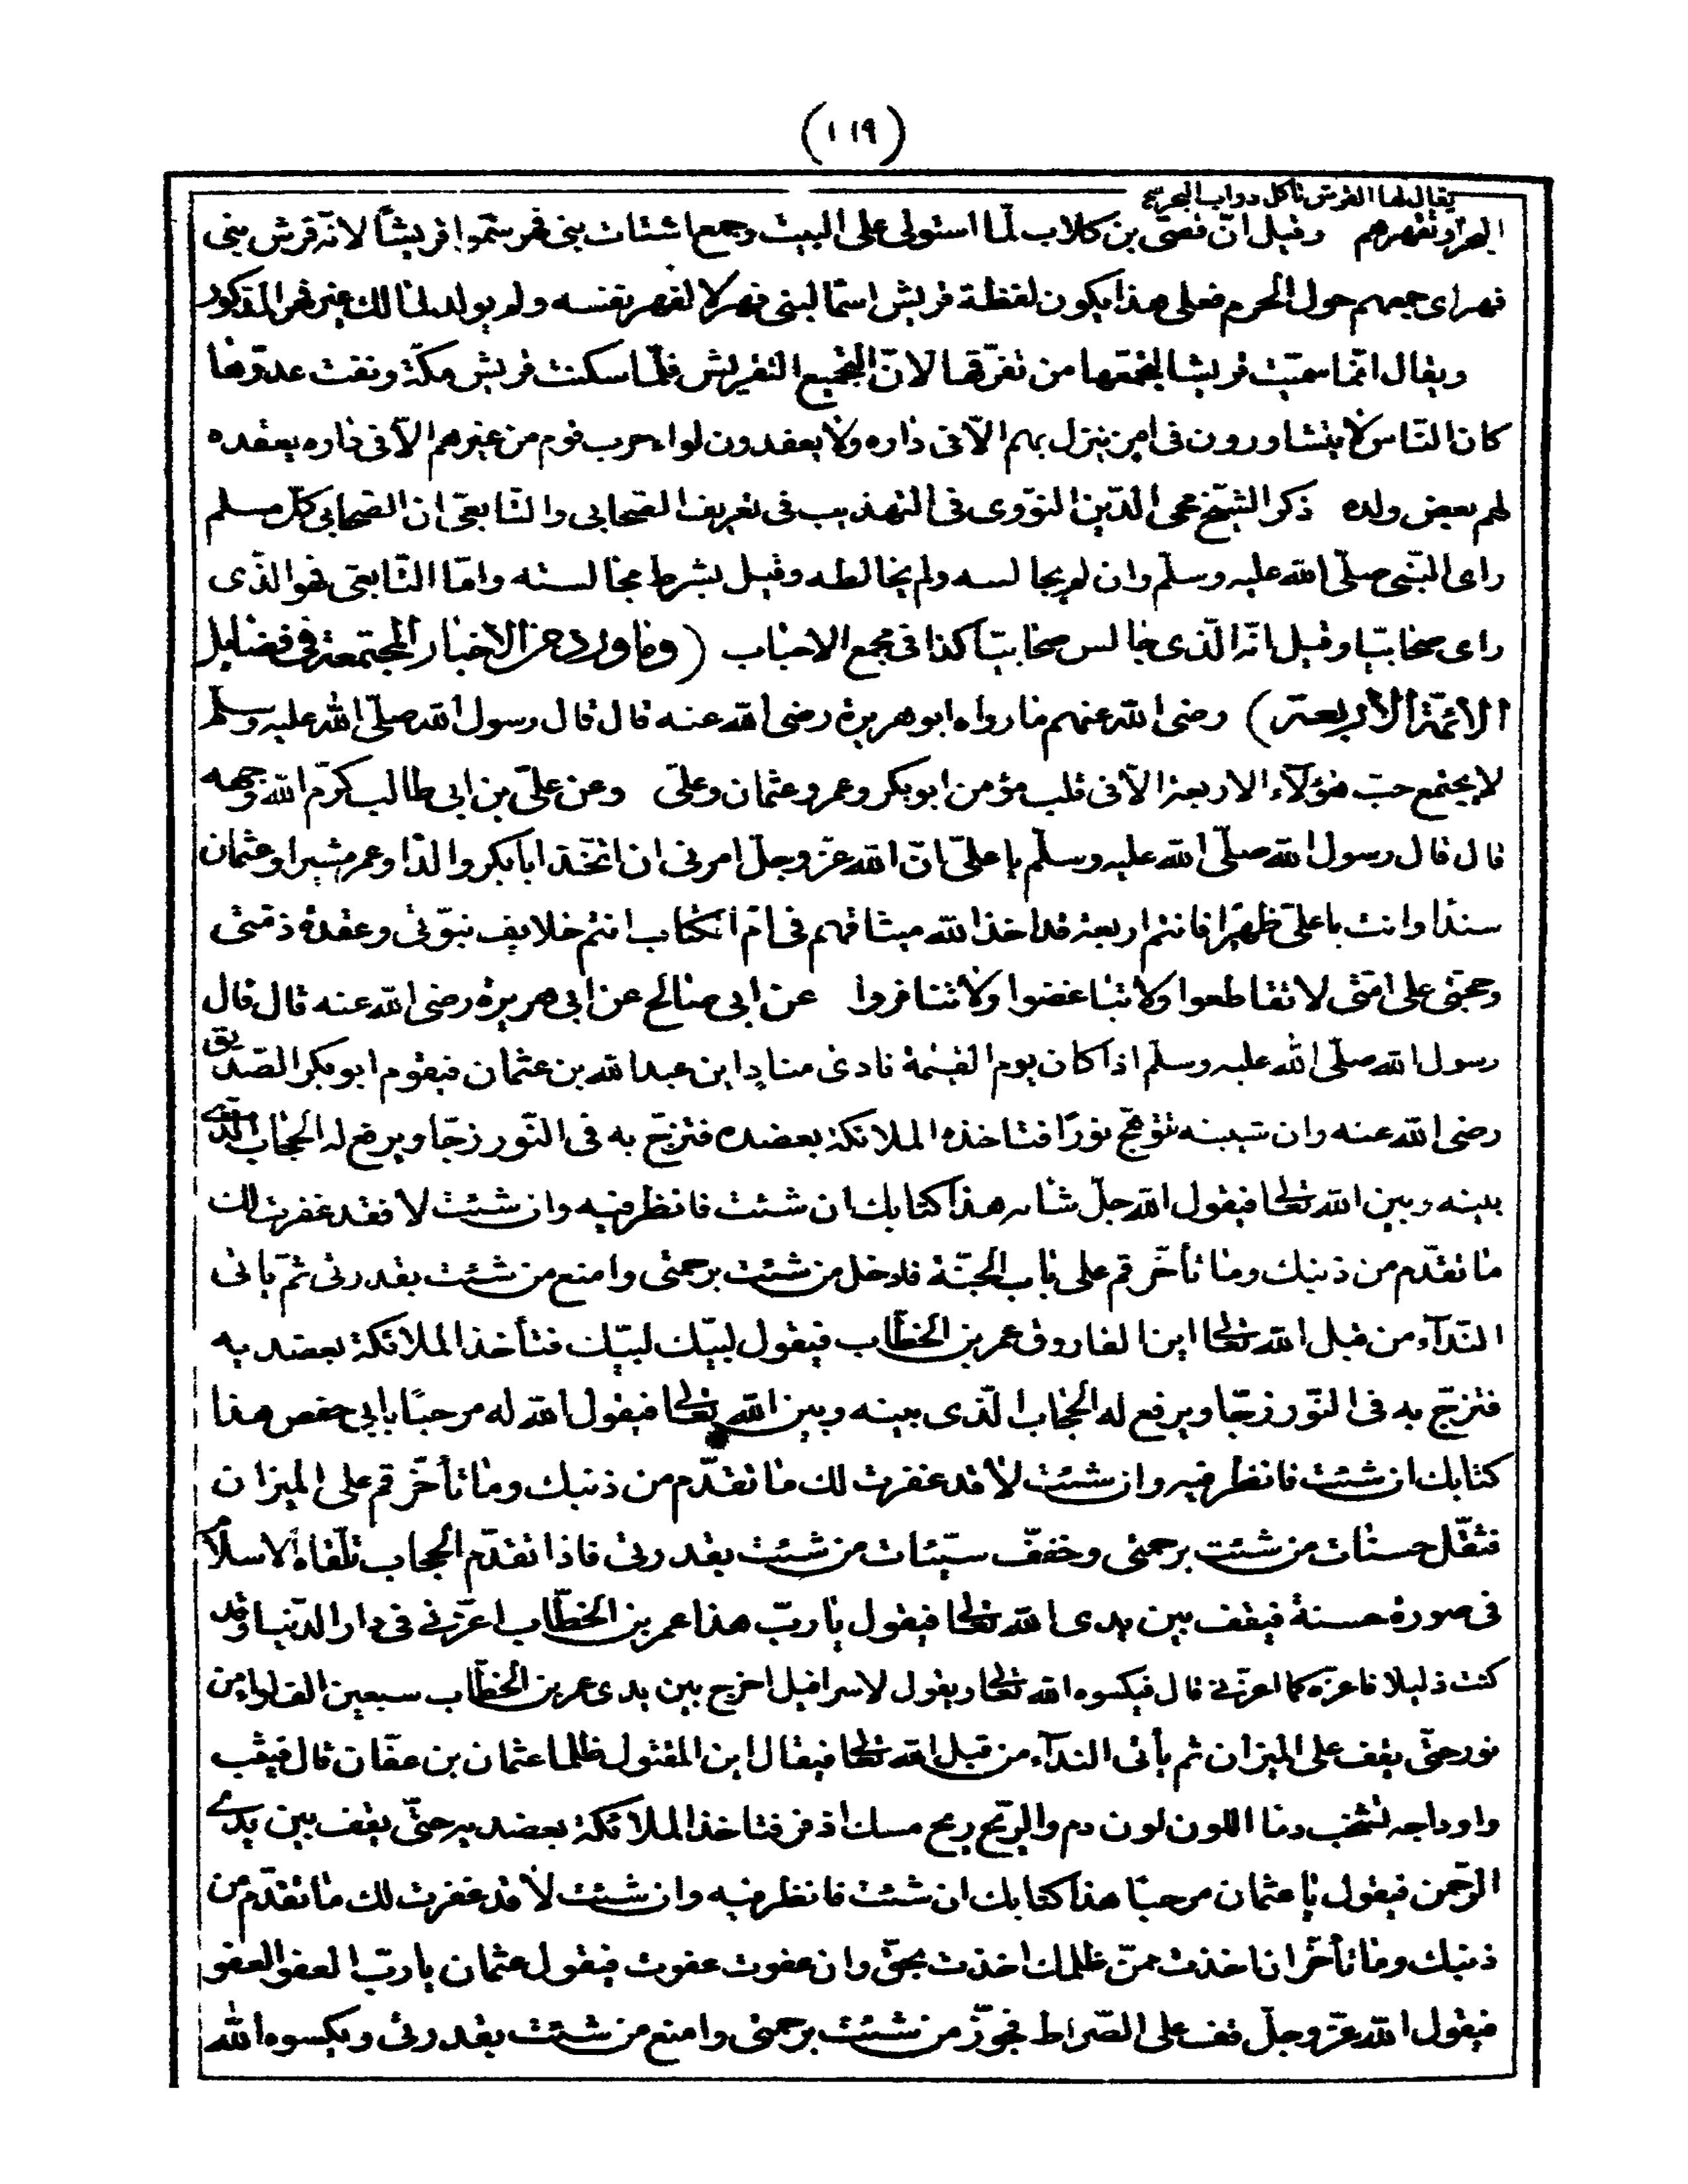 (١١٩)
يقال لها القرش تأكل دواب البحر
البحر وتقهرهم وقيل انّ قصىّ بن كلاب لمّا استولى على البيت وجمع اشتات بنى فهر سمّوا قريشاً لانّه قرش بنى
فهر اى جمعهم حول الحرم فعلى هذا يكون لفظة قريش اسمًا لبنى فهر لا لفهر بنفسه ولم يولد لمالك غير فهر المذكور
ويقال انّما سمّيت قريشا لتجمّعها من تفرّقها لانّ التجميع التقريش فلمّا سكنت قريش مكّة ونفت عدوّها
كان النّاس لا يتشاورون فى امر ينزل بهم الاّ فى داره ولا يعقدون لواء حرب قوم من غيرهم الاّ فى داره يعقده
لهم بعض ولده ذكر الشيخ محى الدّين النوّوى فى التهذيب فى تعريف الصّحابى والتّابعى ان الصّحابى كلّ مسلم
راى النّبى صلّى الله عليه وسلّم وان لم يجالسه ولم يخالطه وقيل بشرط مجالسته وامّا التّابعى فهو الذّى
راى صحابيّا وقيل انّه الّذى جالس صحابيّاً كذا فى مجمع الاحباب (وما ورد من الاخبار المجتمعة فى فضايل
الائمّة الأربعة) رضى الله عنهم ما رواه ابو هريرة رضى الله عنه قال قال رسول الله صلّى الله عليه وسلّم
لا يجتمع حبّ هؤلآء الاربعة الاّ فى قلب مؤمن ابو بكر وعمر وعثمان وعلى وعن علىّ بن ابى طالب كرّم الله وجهه
قال قال رسول الله صلّى الله عليه وسلّم يا علىّ انّ الله عزّ وجلّ امرنى ان اتخّذ ابا بكر والدًا وعمر مشيرا وعثمان
سندًا وانت يا علىّ ظهيرًا فانتم اربعة قد اخذ الله ميثاقهم فى امّ الكتاب انتم خلايف نبوّتى وعقدة ذمّتى
وحجّتى على امّتى لا تقاطعوا ولا تباغضوا ولا تنافروا عن ابى صالح عن ابى هريرة رضى الله عنه قال قال
رسول الله صلّى الله عليه وسلّم اذا كان يوم القيمة نادى منادٍ اين عبد الله بن عثمان فيقوم ابو بكر الصّدّيق
رضى الله عنه وان شيبته تتوهّج نورًا فتاخذه الملائكة بعضده فتزجّ به فى النّور زجّا ويرفع له الحجاب الّذى
بينه وبين الله تعالى فيقول الله جلّ شانه هذا كتابك ان شئت فانظر فيه وان شئت لا فقد غفرت لك
ما تقدّم من ذنبك وما تأخّر قم على باب الجنّة فادخل من شئت برحمتى وامنع من شئت بقدرتى ثمّ يأتى
النّدآء من قبل الله تعالى اين الفاروق عمر بن الخطّاب فيقول لبيّك لبيّك فتأخذ الملائكة بعضد به
فتزجّ به فى النّور زجّا ويرفع له الحجاب الّذى بينه وبين الله تعالى فيقول الله له مرحبًا يا ابى حفص هذا
كتابك ان شئت فانظر فيه وان شئت لا قد غفرت لك ما تقدّم من ذنبك وما تأخّر قم على الميزان
فثقّل حسنات من شئت برحمتى وخفّف سيّئات من شئت بقدرتى فاذا تقدّم الحجاب تلّقاه الاسلام
فى صورة حسنة فيقف بين يدى الله تعالى فيقول يا ربّ هذا عمر بن الخطّاب اعزّنى فى دار الدّنيا وقد
كنت ذليلا فاعزّه كما اعزّنى قال فيكسوه الله تعالى ويقول لاسرافيل اخرج بين يدى عمر بن الخطّاب سبعين الف لواء من
نور حتّى يقف على الميزان ثم يأتى الندآء من قبل الله تعالى فيقال اين المقتول ظلما عثمان بن عفّان قال فيثب
واوداجه تشخب دما اللون لون دم والرّيح ريح مسك اذفر فتاخذ الملائكة بعضديه حتّى يقف بين يدى
الرّحمن فيقول يا عثمان مرحبًا هذا كتابك ان شئت فانظر فيه وان شئت لا قد غفرت لك ما تقدّم من
ذنبك وما تأخّر انا خذت ممّن ظلمك اخذت بحقّ وان عفوت عفوت فيقول عثمان يا ربّ العفو العفو
فيقول الله عزّ وجلّ قف على الصّراط فجوّز من شئت برحمتى وامنع من شئت بقدرتى ويكسوه الله